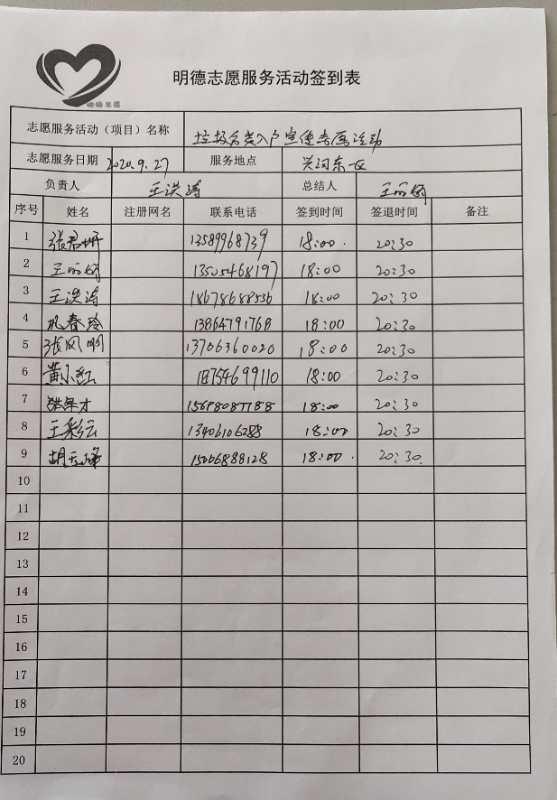 明德志愿服务活动签到表
志愿服务活动（项目）名称 垃圾分类入户宣传志愿活动
志愿服务日期 2020.9.27 服务地点 兴河东区
负责人 王洪涛 总结人 王丽娟
序号 姓名 注册网名 联系电话 签到时间 签退时间 备注
1 13589968739 18:00 20:30
2 王丽娟 13505468197 18:00 20:30
3 王洪涛 18678688556 18:00 20:30
4 13864791768 18:00 20:30
5 张凤明 13706360020 18:00 20:30
6 黄小红 18754699110 18:00 20:30
7 18:00 20:30
8 王彩云 13406106288 18:00 20:30
9 15006888128 18:00 20:30
10
11
12
13
14
15
16
17
18
19
20